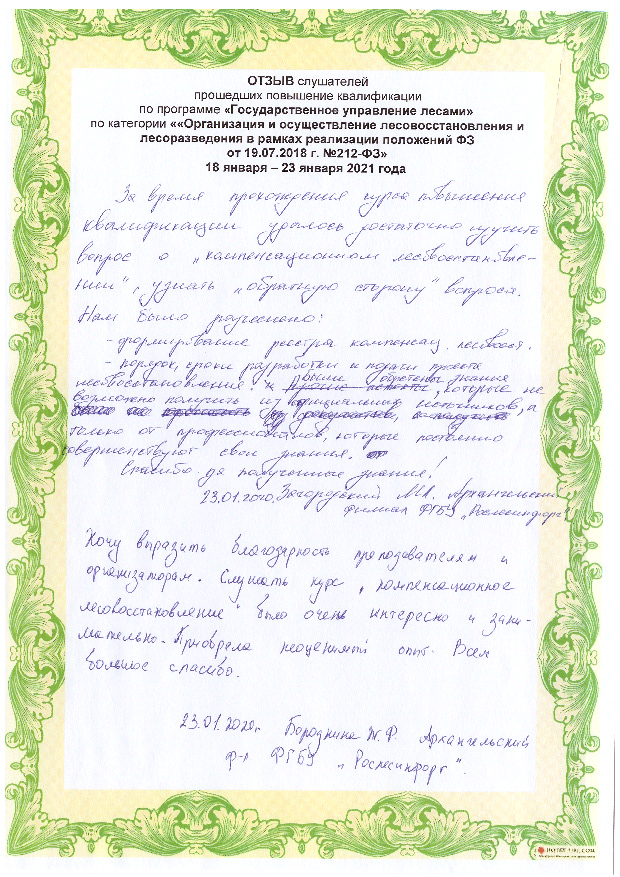 ОТЗЫВ слушателей
прошедших повышение квалификации
по программе «Государственное управление лесами»
по категории ««Организация и осуществление лесовосстановления и
лесоразведения в рамках реализации положений ФЗ
от 19.07.2018 г. №212-ФЗ»
18 января – 23 января 2021 года
За время прохождения курса повышения
квалификации удалось достаточно изучить
вопрос о „компенсационном лесовосстановле-
нии", узнать „обратную сторону" вопроса.
Нам было разъяснено:
- формирование реестра компенсац. лесовосст.
- порядок, сроки разработки и подачи проекта
лесовосстановления были обретены знания
, которые не
возможно получить из официальных источников, а
только от профессионалов, которые постоянно
совершенствуют свои знания.
Спасибо за полученные знания!
23.01.2020. Загородский М.Л. Архангельский
филиал ФГБУ „Рослесинфорг"
Хочу выразить благодарность преподавателям и
организаторам. Слушать курс „компенсационное
лесовосстановление" было очень интересно и зани-
мательно. Приобрела неоценимый опыт. Всем
большое спасибо.
23.01.2020г. Бороднина Ж.Ф. Архангельский
ф-л ФГБУ „Рослесинфорг".